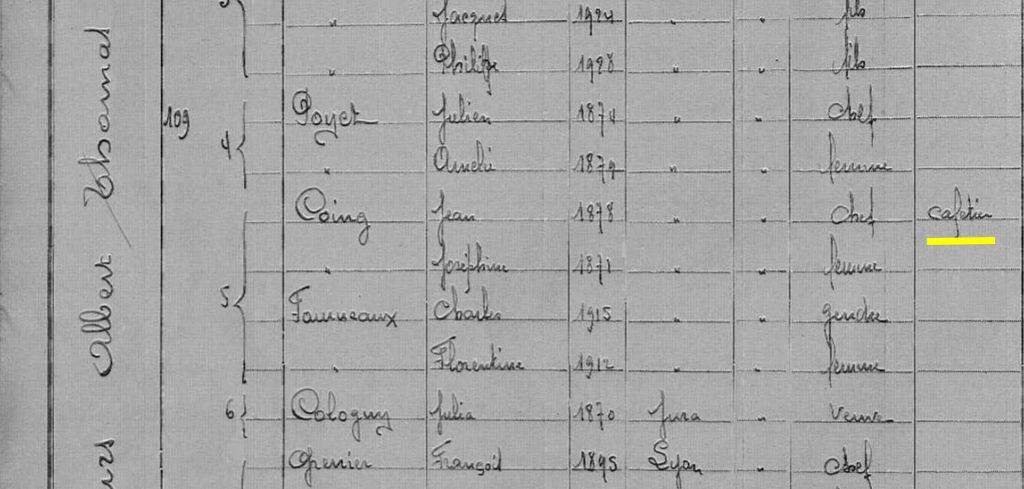 " Jacques 1924 " " fils
" Philippe 1928 " " fils
109 Poyet Julien 1874 " " chef
4 " Amelie 1879 " " femme
Coing Jean 1878 " " chef cafetier
" Joséphine 1871 " " femme
5 Fourneaux Charles 1915 " " gendre
" Florentine 1912 " " femme
6 Cologny Julia 1870 Jura " veuve
François 1895 Lyon " chef
Cours Albert Thomas